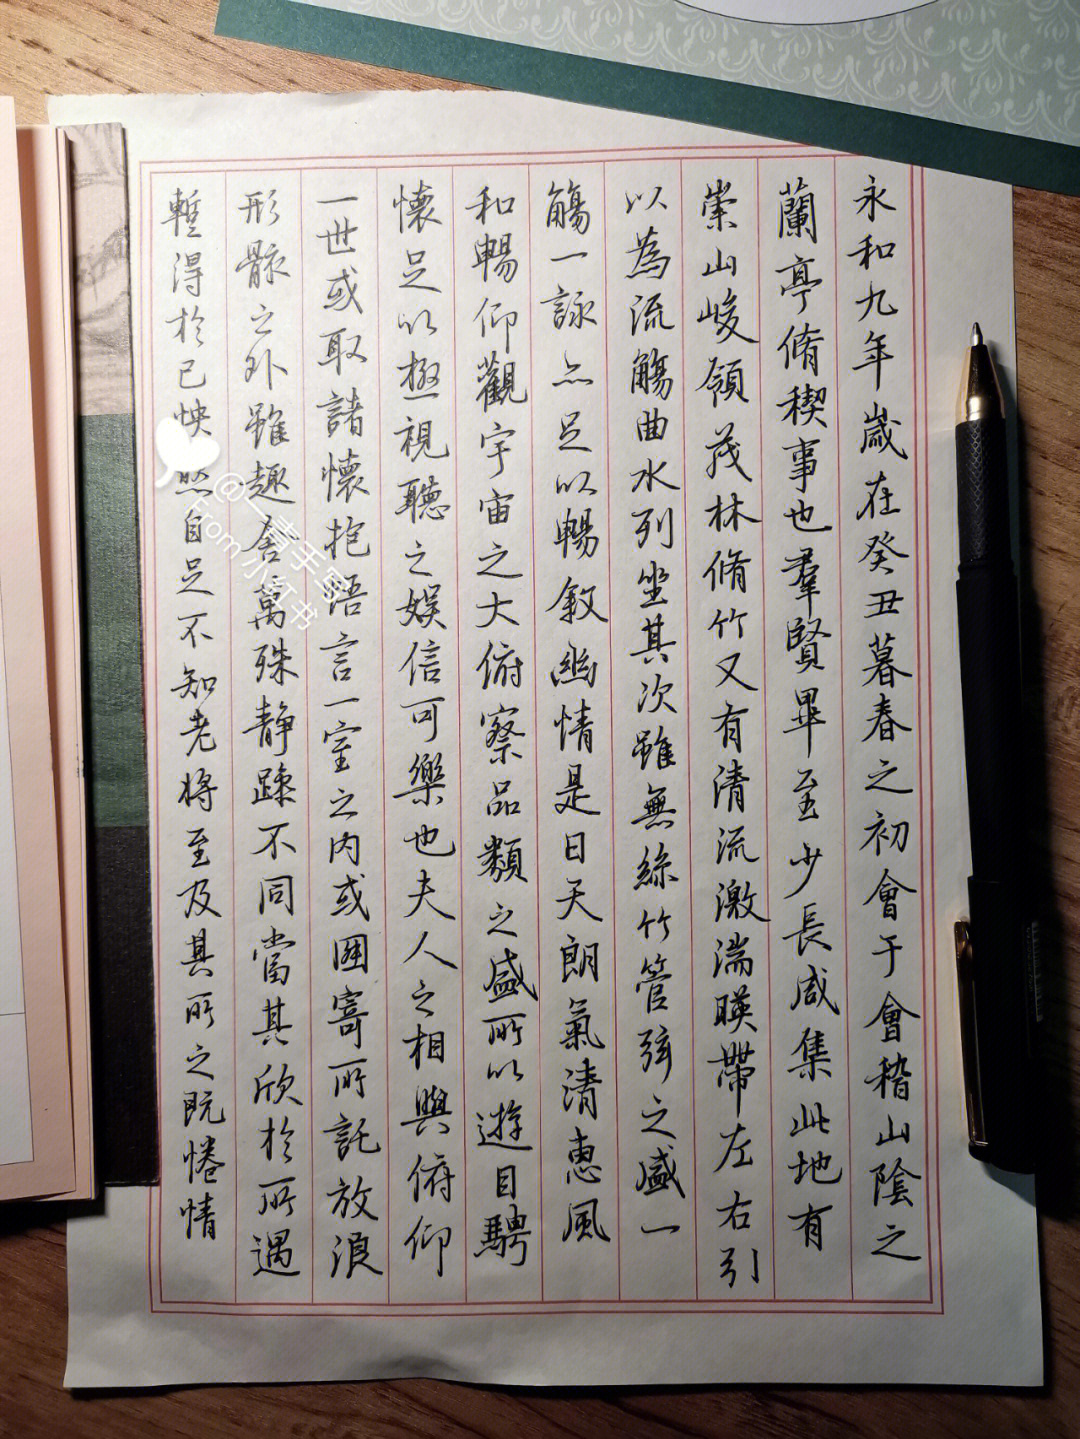 永和九年歲在癸丑暮春之初會于會稽山陰之
蘭亭脩稧事也羣賢畢至少長咸集此地有
崇山峻領茂林脩竹又有清流激湍暎帶左右引
以為流觴曲水列坐其次雖無絲竹管弦之盛一
觴一詠亦足以暢敘幽情是日天朗氣清惠風
和暢仰觀宇宙之大俯察品類之盛所以遊目騁
懷足以極視聽之娛信可樂也夫人之相與俯仰
一世或取諸懷抱悟言一室之內或因寄所託放浪
形骸之外雖趣舍萬殊靜躁不同當其欣於所遇
暫得於己怏然自足不知老將至及其所之既惓情
From 小红书